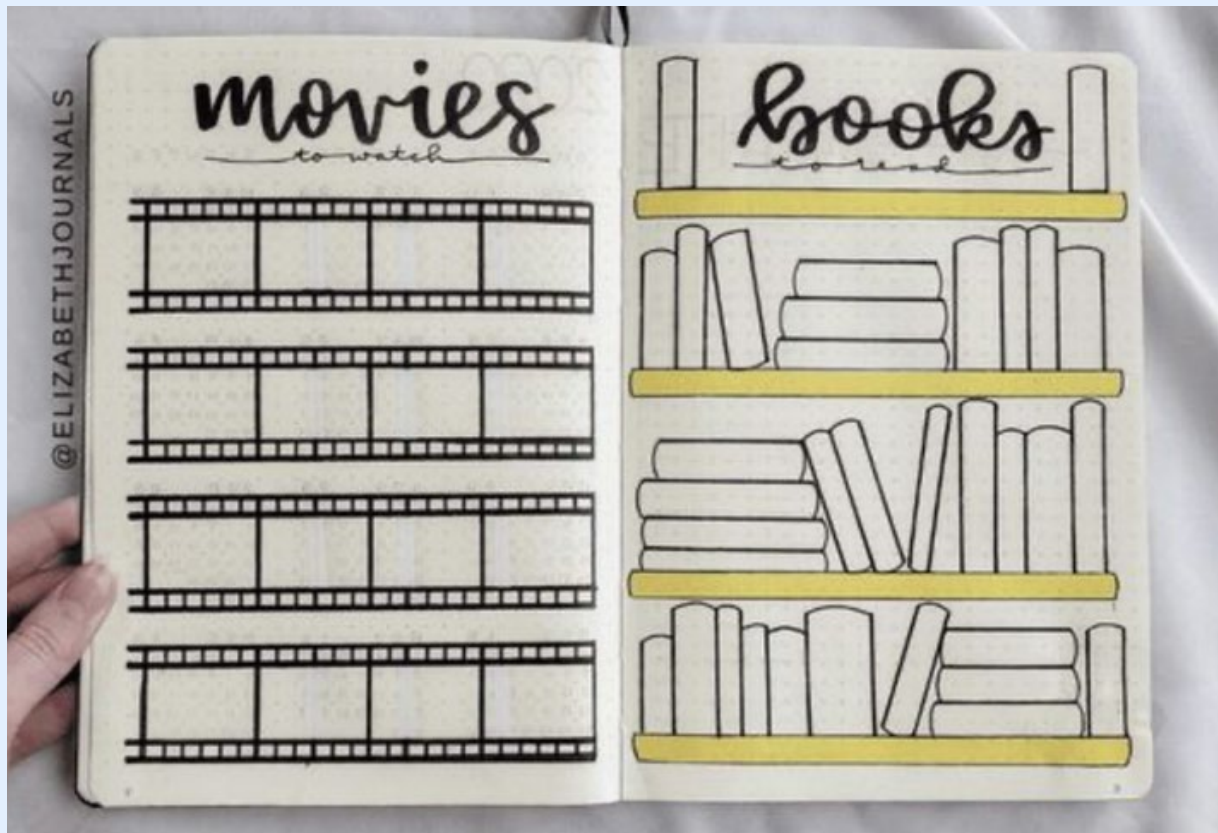 @ELIZABETHJOURNALS
movies
to watch
books
to read